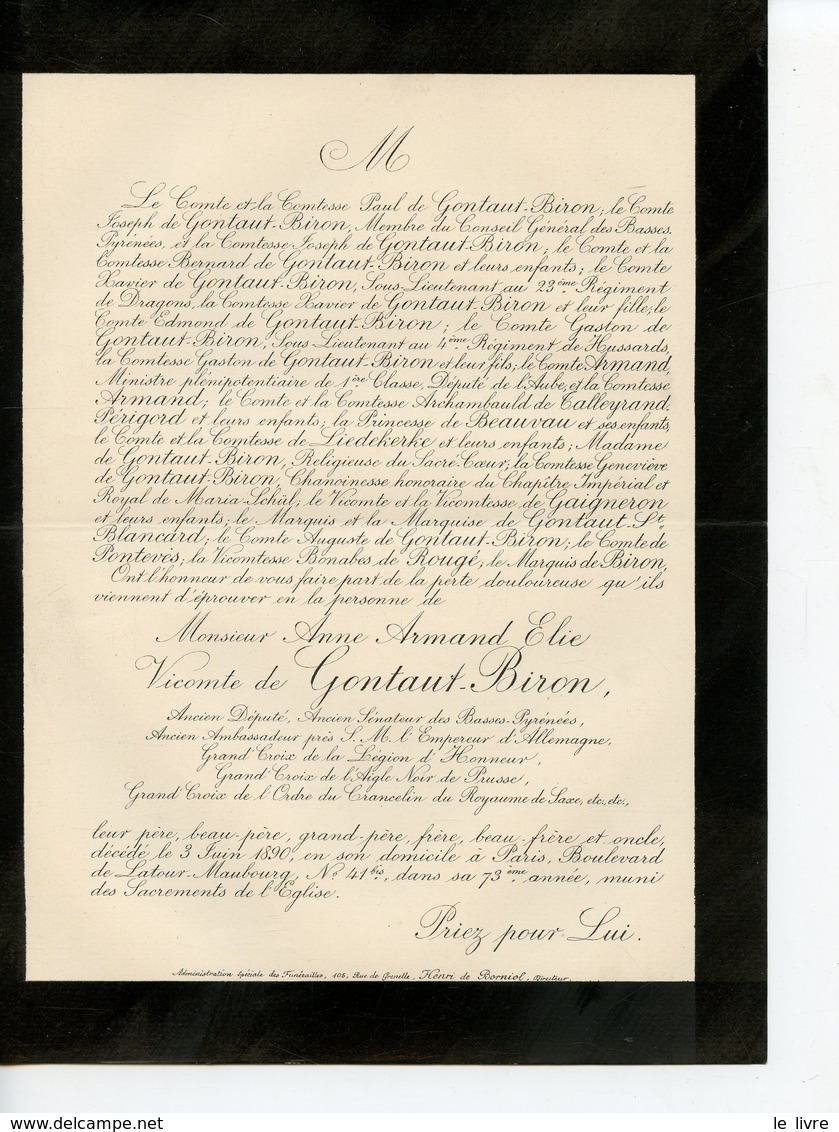 M
Le Comte et la Comtesse Paul de Gontaut-Biron; le Comte
Joseph de Gontaut-Biron, Membre du Conseil Général des Basses-
Pyrénées, et la Comtesse Joseph de Gontaut-Biron; le Comte et la
Comtesse Bernard de Gontaut-Biron et leurs enfants; le Comte
Xavier de Gontaut-Biron, Sous-Lieutenant au 23ème Régiment
de Dragons, la Comtesse Xavier de Gontaut-Biron et leur fille; le
Comte Edmond de Gontaut-Biron; le Comte Gaston de
Gontaut-Biron, Sous-Lieutenant au 4ème Régiment de Hussards,
la Comtesse Gaston de Gontaut-Biron et leur fils; le Comte Armand,
Ministre plénipotentiaire de 1ère Classe, Député de l'Aube, et la Comtesse
Armand; le Comte et la Comtesse Archambauld de Talleyrand-
Périgord et leurs enfants; la Princesse de Beauvau et ses enfants,
le Comte et la Comtesse de Liedekerke et leurs enfants; Madame
de Gontaut-Biron, Religieuse du Sacré-Cœur; la Comtesse Geneviève
de Gontaut-Biron, Chanoinesse honoraire du Chapitre Impérial et
Royal de Maria-Schül; le Vicomte et la Vicomtesse de Gaigneron
et leurs enfants; le Marquis et la Marquise de Gontaut-St.
Blancard; le Comte Auguste de Gontaut-Biron; le Comte de
Pontevès; la Vicomtesse Bonabes de Rougé; le Marquis de Biron,
Ont l'honneur de vous faire part de la perte douloureuse qu'ils
viennent d'éprouver en la personne de
Monsieur Anne Armand Elie
Vicomte de Gontaut-Biron,
Ancien Député, Ancien Sénateur des Basses-Pyrénées,
Ancien Ambassadeur près S. M. l'Empereur d'Allemagne,
Grand'Croix de la Légion d'Honneur,
Grand'Croix de l'Aigle Noir de Prusse,
Grand'Croix de l'Ordre du Crancelin du Royaume de Saxe, etc., etc.,
leur père, beau-père, grand-père, frère, beau-frère et oncle,
décédé le 3 Juin 1890, en son domicile à Paris, Boulevard
de Latour-Maubourg, No. 41bis, dans sa 73ème année, muni
des Sacrements de l'Eglise.
Priez pour Lui.
Administration Spéciale des Funérailles, 105, Rue de Grenelle, Henri de Borniol, Directeur.
www.delcampe.net
le livre